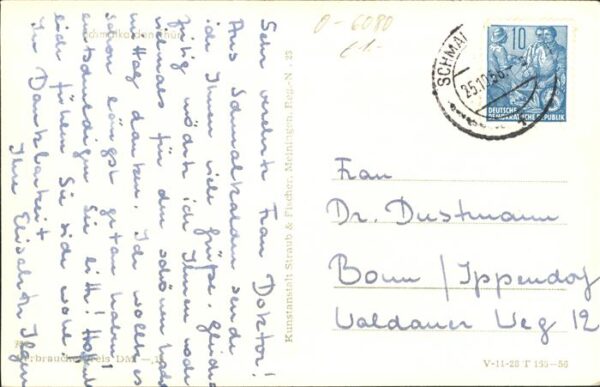 Schmalkalden/Thür.
Sehr verehrte Frau Doktor!
Aus Schmalkalden sende
ich Ihnen viele Grüße. Gleich-
zeitig möchte ich Ihnen noch
vielmals für den schönen
mittag danken. Ich wollte es
schon längst getan haben,
entschuldigen Sie bitte!
Sie sich wohl
In Dankbarkeit
Ihre Elisabeth
Verbraucherpreis DM
Kunstanstalt Straub & Fischer, Meiningen, Reg.-N
0-6080
SCHMAL
25.10.56
10
DEUTSCHE
DEMOKRATISCHE REPUBLIK
Frau
Dr. Dustmann
Bonn / Ippendorf
Waldauer Weg 12
V-11-28 T 195-56